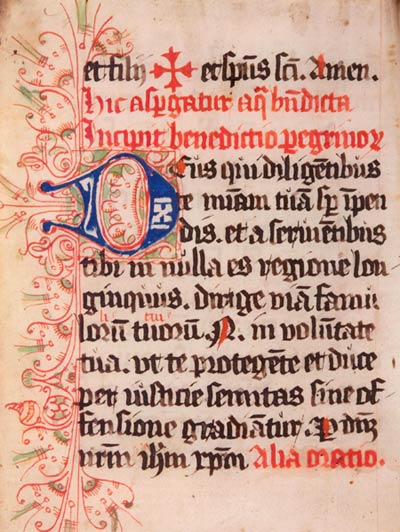 et filij ✠ et sp̄us sc̄i. Amen.
Hic asꝑgatur aq̄ bn̄dicta
Incipit benedictio peregrinoꝝ
Deus qui diligētibus
te mīam tuā sꝑ īpen
dis. et a seruiētibus
tibi in nulla es regione lon
ginquus. dirige viā famu
li tui
lorū tuorū. N. in volūtate
tua. vt te protegēte et duce
per iusticie semitas sine of
fensione gradiātur. ꝑ dm̄
nrm̄ ih̄m xp̄m Alia oratio.